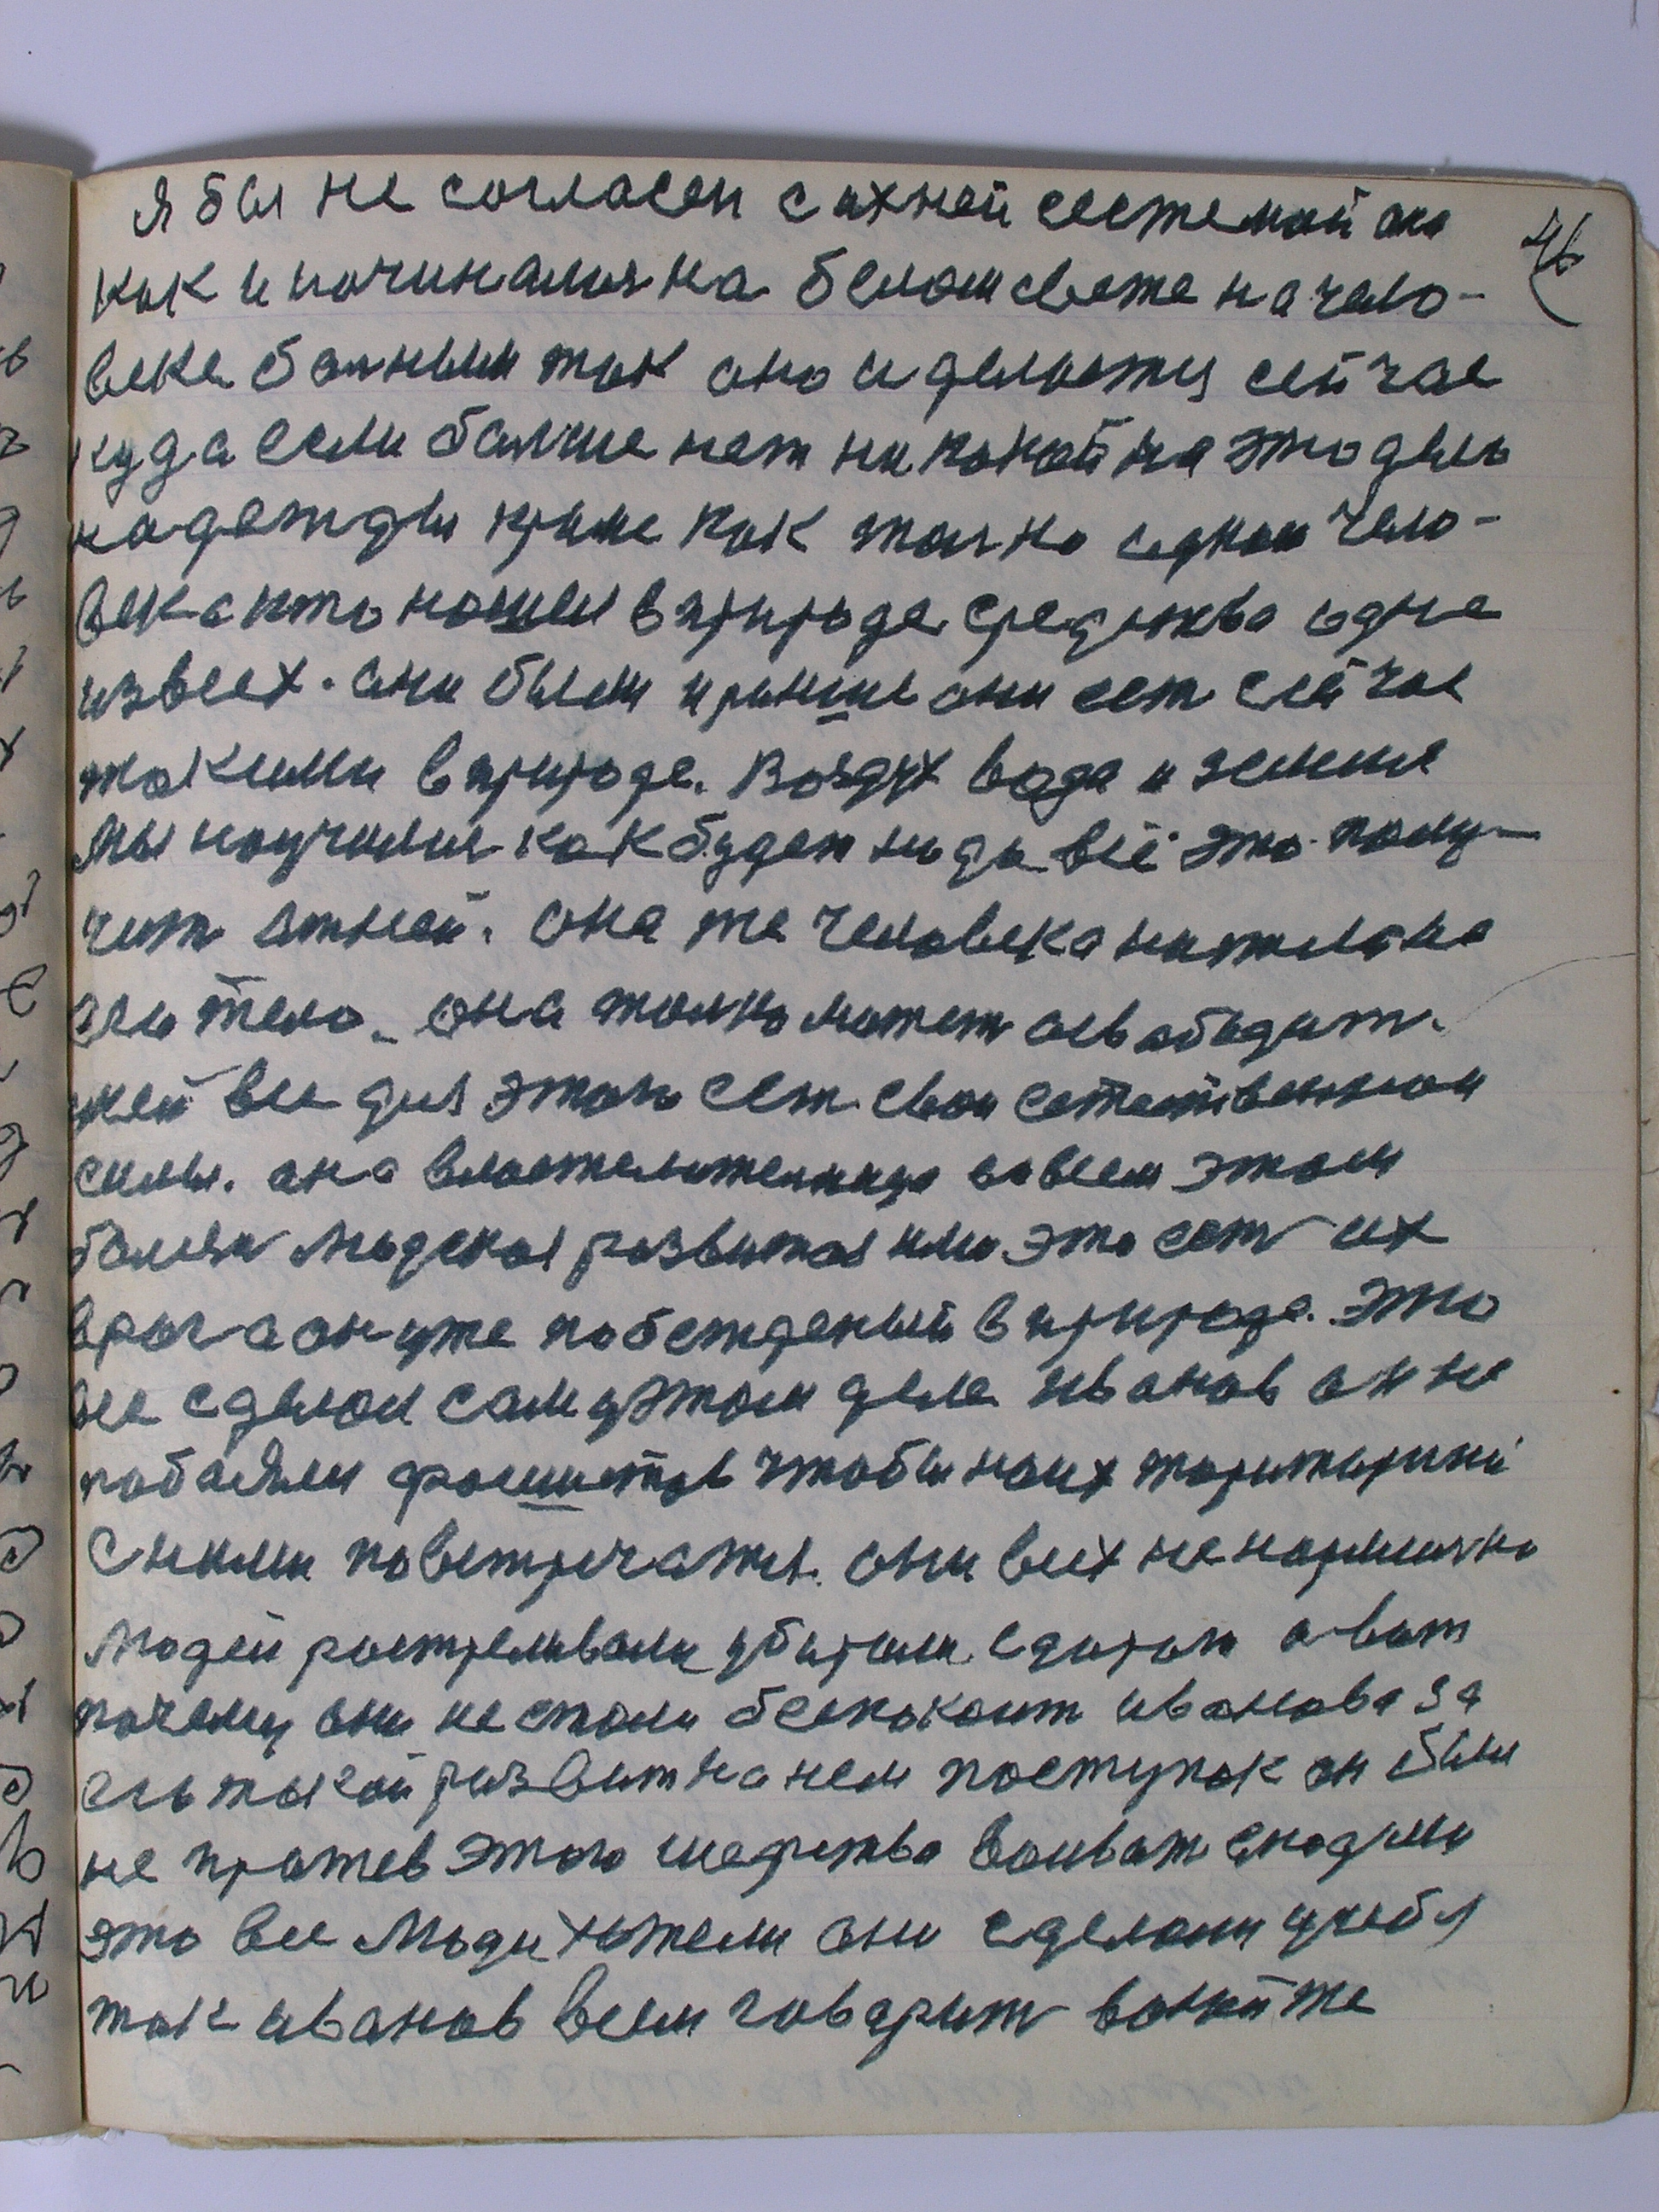 я был не согласен с ихней системой оно
46
как и починалися на белом свете на чело-
века болным так оно и делается сейчас
куда если болше нет никокой на это дело
надежды кроме как толко одном чело-
века кто ношел в природе средства одне
из всех. они были и раньше они ест сейчас
такими в природе. Воздух вода и земля
мы научился как будет люди всё это полу-
чит от ней. она же человека нажила на
его тело. она толко может освободит.
у ней все для этого сест свои естественнои
силы. она властелителница во всем этом
болезн людская развитая или это ест их
враг а он уже побежденый в природе. это
все сделал сам у этом деле иванов он не
побоялся фошистов чтобы на их територии
с ними повстричатся. они всех ненормално
людей ростреливали убирали с дороги а вот
почему они не стали беспокоит иванова за
его такой развит на нем поступок он был
не протев этого шефства воиват с людми
это все люди хотели они сделали у себя
так иванов всем говорит воюйте